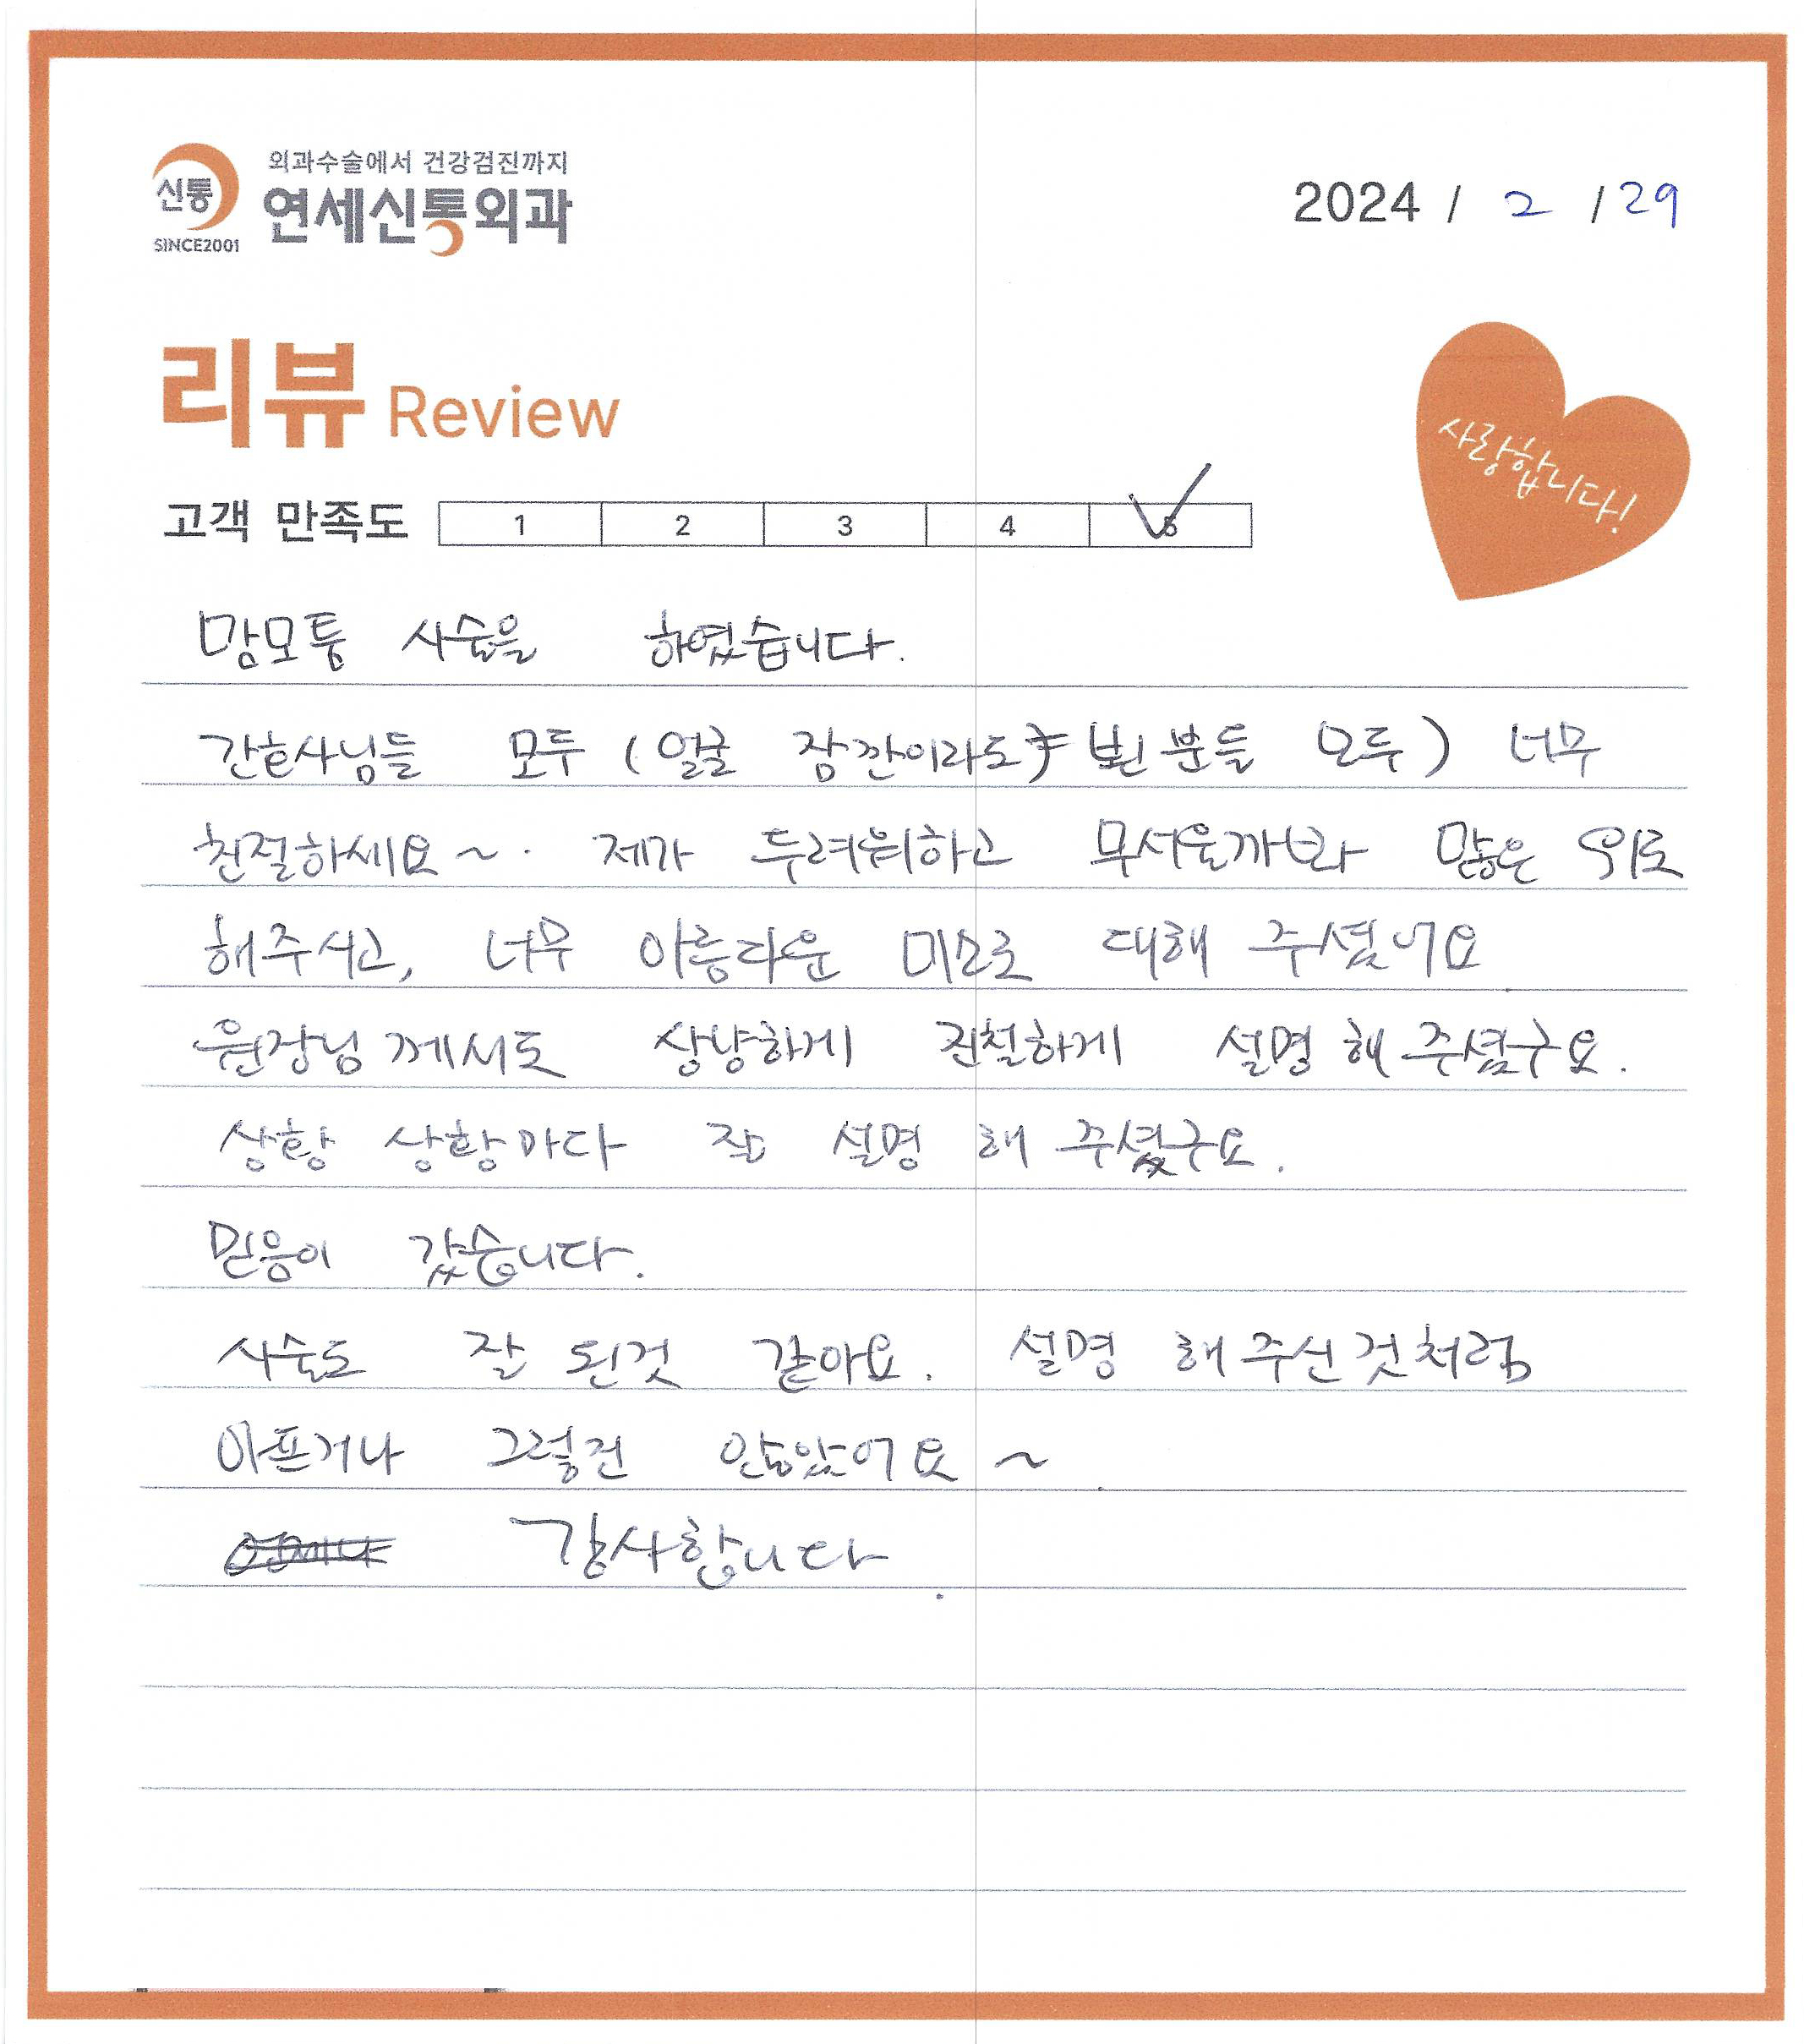 외과수술에서 건강검진까지
신통 연세신통외과
SINCE2001
2024 / 2 / 29
리뷰 Review
사랑합니다!
고객 만족도 1 2 3 4 5
맘모톰 시술을 하였습니다.
간호사님들 모두 (얼굴 잠깐이라도 뵌 분들 모두) 너무
친절하세요~. 제가 두려워하고 무서울까봐 많은 위로
해주시고, 너무 아름다운 미소로 대해 주셨어요
원장님께서도 상냥하게 친절하게 설명 해 주셨구요.
상황 상황마다 잘 설명 해 주셨구요.
믿음이 갔습니다.
시술도 잘 된것 같아요. 설명 해주신것처럼
아프거나 그렇진 않았어요~
감사합니다.